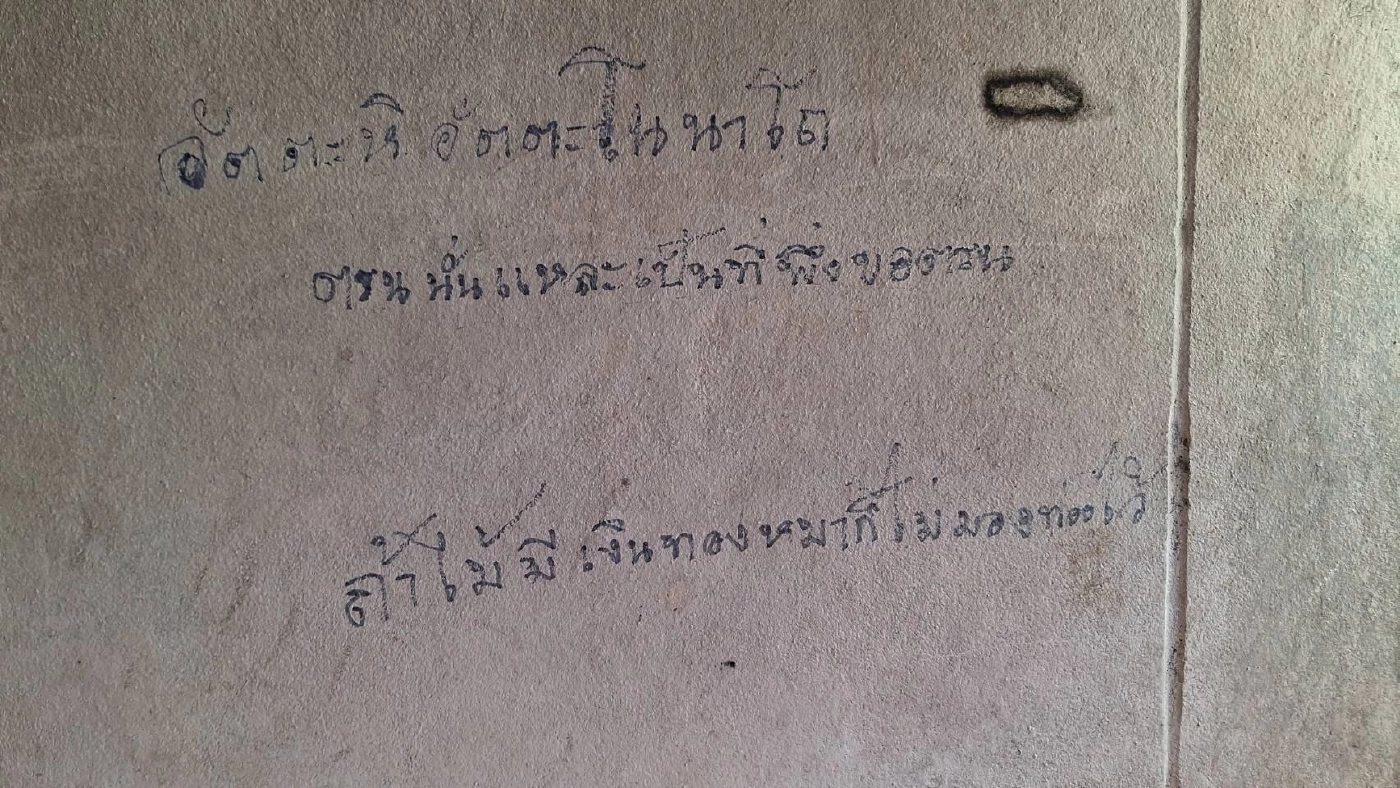 อัตตะหิ อัตตะโน นาโถ
ตรน นั่นแหละเป็นที่พึ่งขอตรน
ถ้าไม้มี เงินทองหมาก็ไม่มองท่องไว้